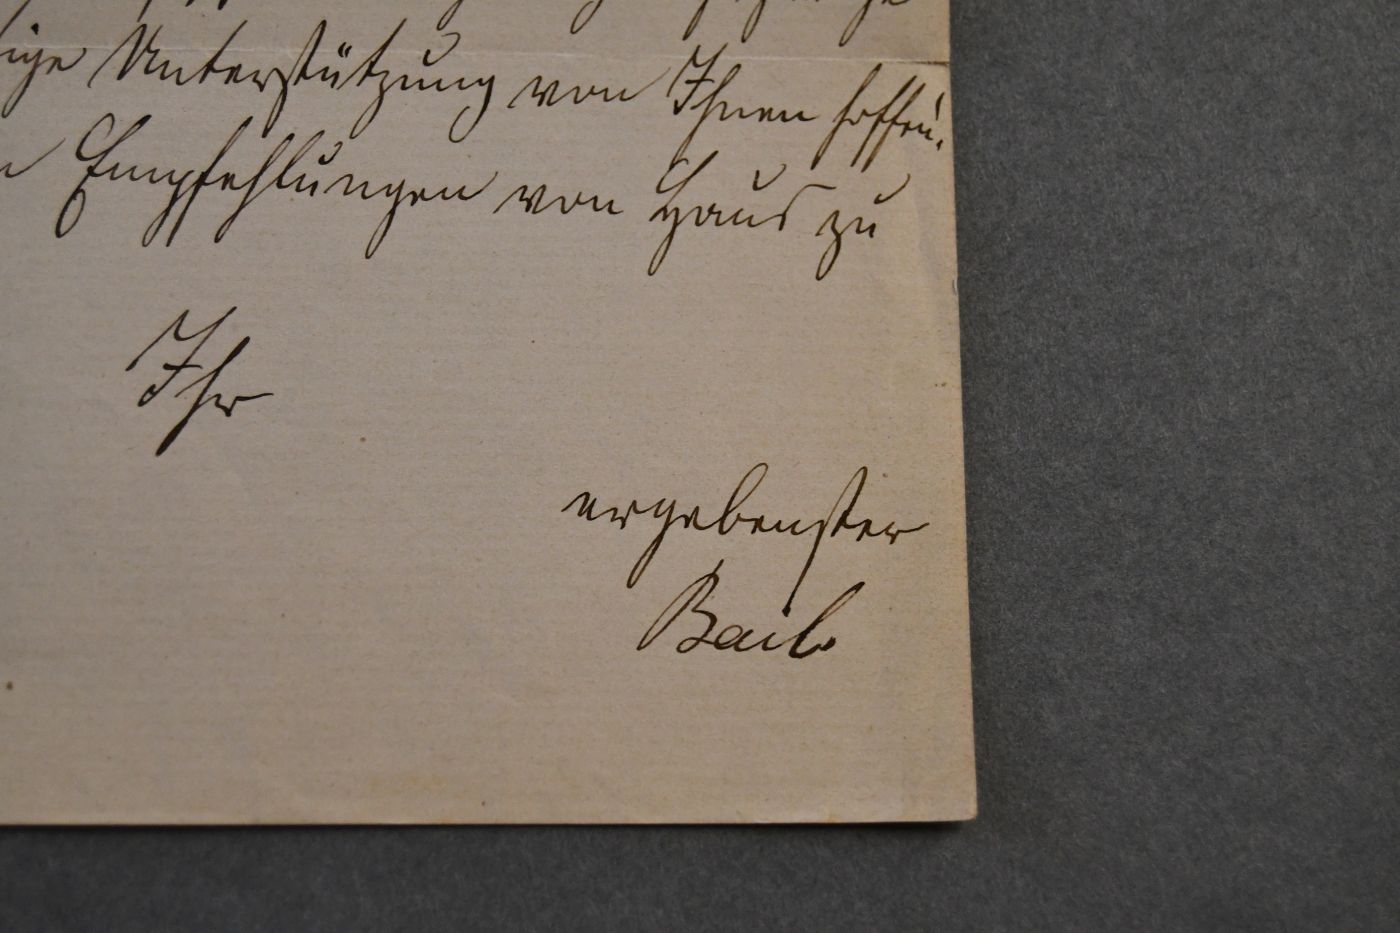 Unterstützung von Ihnen hoffen.
Empfehlungen von Haus zu
Ihr
ergebenster
Bail.